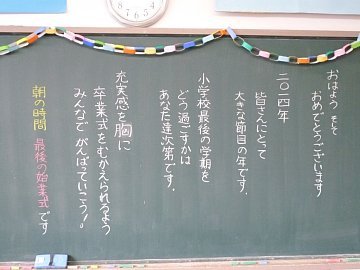 おはよう そして
おめでとうございます
二〇二四年
皆さんにとって
大きな節目の年です。
小学校最後の学期を
どう過ごすかは
あなた達次第です。
充実感を胸に
卒業式をむかえられるよう
みんなで がんばっていこう！
朝の時間 最後の始業式です